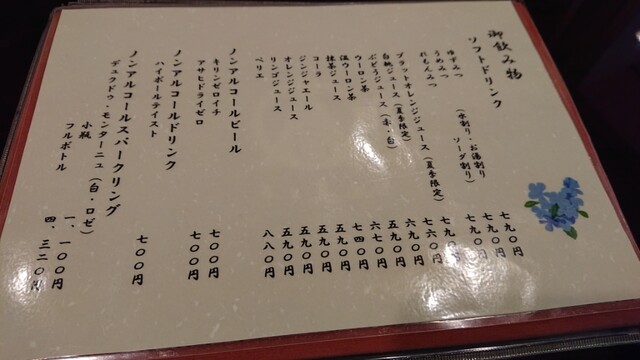 御飲み物
ソフトドリンク
ゆずみつ (水割り・お湯割り 七九〇円
うめみつ ソーダ割り) 七九〇円
れもんみつ 七九〇円
ブラットオレンジジュース(夏季限定) 七九〇円
白桃ジュース(夏季限定) 七六〇円
ぶどうジュース(赤・白) 六九〇円
ウーロン茶 五九〇円
温ウーロン茶 六七〇円
抹茶ジュース 七四〇円
コーラ 五九〇円
ジンジャエール 五九〇円
オレンジジュース 五九〇円
リンゴジュース 五九〇円
ペリエ 八八〇円
ノンアルコールビール
キリンゼロイチ 七〇〇円
アサヒドライゼロ 七〇〇円
ノンアルコールドリンク
ハイボールテイスト 七〇〇円
ノンアルコールスパークリング
デュクドゥ・モンターニュ(白・ロゼ)
小瓶 一、一〇〇円
フルボトル 四、三二〇円